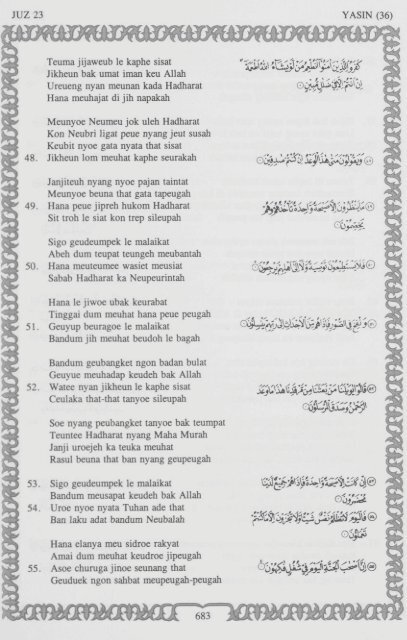 JUZ 23 YASIN (36)
Teuma jijaweub le kaphe sisat
Jikheun bak umat iman keu Allah
Ureueng nyan meunan kada Hadharat
Hana meuhajat di jih napakah
كَفَرُوا لِلَّذِينَ آمَنُوا أَنُطْعِمُ مَنْ لَوْ يَشَاءُ اللَّهُ أَطْعَمَهُ
إِنْ أَنْتُمْ إِلَّا فِي ضَلَالٍ مُبِينٍ
Meunyoe Neumeu jok uleh Hadharat
Kon Neubri ligat peue nyang jeut susah
Keubit nyoe gata nyata that sisat
48. Jikheun lom meuhat kaphe seurakah
وَيَقُولُونَ مَتَى هَذَا الْوَعْدُ إِنْ كُنْتُمْ صَادِقِينَ
Janjiteuh nyang nyoe pajan taintat
Meunyoe beuna that gata tapeugah
49. Hana peue jipreh hukom Hadharat
Sit troh le siat kon trep sileupah
مَا يَنْظُرُونَ إِلَّا صَيْحَةً وَاحِدَةً تَأْخُذُهُمْ وَهُمْ
يَخِصِّمُونَ
Sigo geudeumpek le malaikat
Abeh dum teupat teungeh meubantah
50. Hana meuteumee wasiet meusiat
Sabab Hadharat ka Neupeurintah
فَلَا يَسْتَطِيعُونَ تَوْصِيَةً وَلَا إِلَى أَهْلِهِمْ يَرْجِعُونَ
Hana le jiwoe ubak keurabat
Tinggai dum meuhat hana peue peugah
51. Geuyup beuragoe le malaikat
Bandum jih meuhat beudoh le bagah
وَنُفِخَ فِي الصُّورِ فَإِذَا هُمْ مِنَ الْأَجْدَاثِ إِلَى رَبِّهِمْ يَنْسِلُونَ
Bandum geubangket ngon badan bulat
Geuyue meuhadap keudeh bak Allah
52. Watee nyan jikheun le kaphe sisat
Ceulaka that-that tanyoe sileupah
قَالُوا يَا وَيْلَنَا مَنْ بَعَثَنَا مِنْ مَرْقَدِنَا هَذَا مَا وَعَدَ
الرَّحْمَنُ وَصَدَقَ الْمُرْسَلُونَ
Soe nyang peubangket tanyoe bak teumpat
Teuntee Hadharat nyang Maha Murah
Janji uroejeh ka teuka meuhat
Rasul beuna that ban nyang geupeugah
53. Sigo geudeumpek le malaikat
Bandum meusapat keudeh bak Allah
إِنْ كَانَتْ إِلَّا صَيْحَةً وَاحِدَةً فَإِذَا هُمْ جَمِيعٌ لَدَيْنَا
مُحْضَرُونَ
54. Uroe nyoe nyata Tuhan ade that
Ban laku adat bandum Neubalah
فَالْيَوْمَ لَا تُظْلَمُ نَفْسٌ شَيْئًا وَلَا تُجْزَوْنَ إِلَّا مَا كُنْتُمْ
تَعْمَلُونَ
Hana elanya meu sidroe rakyat
Amai dum meuhat keudroe jipeugah
55. Asoe churuga jinoe seunang that
Geuduek ngon sahbat meupeugah-peugah
إِنَّ أَصْحَابَ الْجَنَّةِ الْيَوْمَ فِي شُغُلٍ فَاكِهُونَ
683